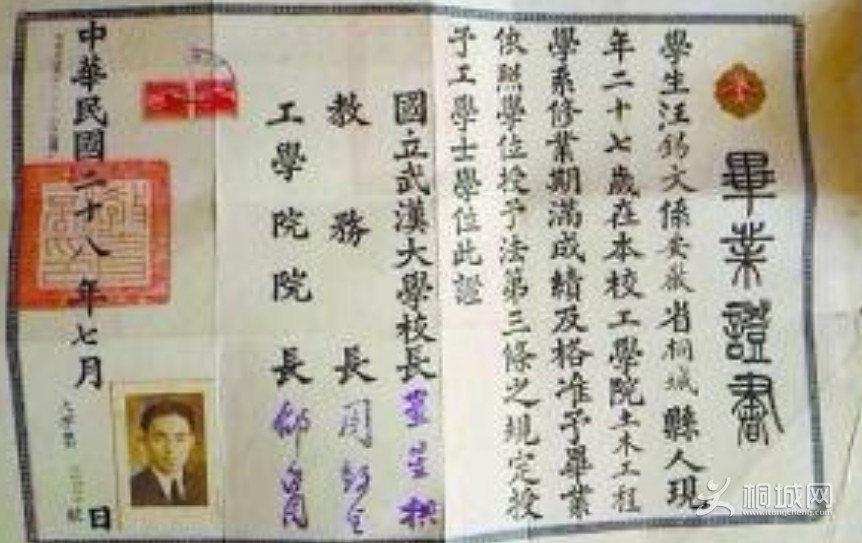 畢業證書
學生汪錫文係安徽省桐城縣人現
年二十七歲在本校工學院土木工程
學系修業期滿成績及格准予畢業
依照學位授予法第三條之規定授
予工學士學位此證
國立武漢大學校長
教務長
工學院院長
中華民國二十八年七月 日
桐城网
itongcheng.com